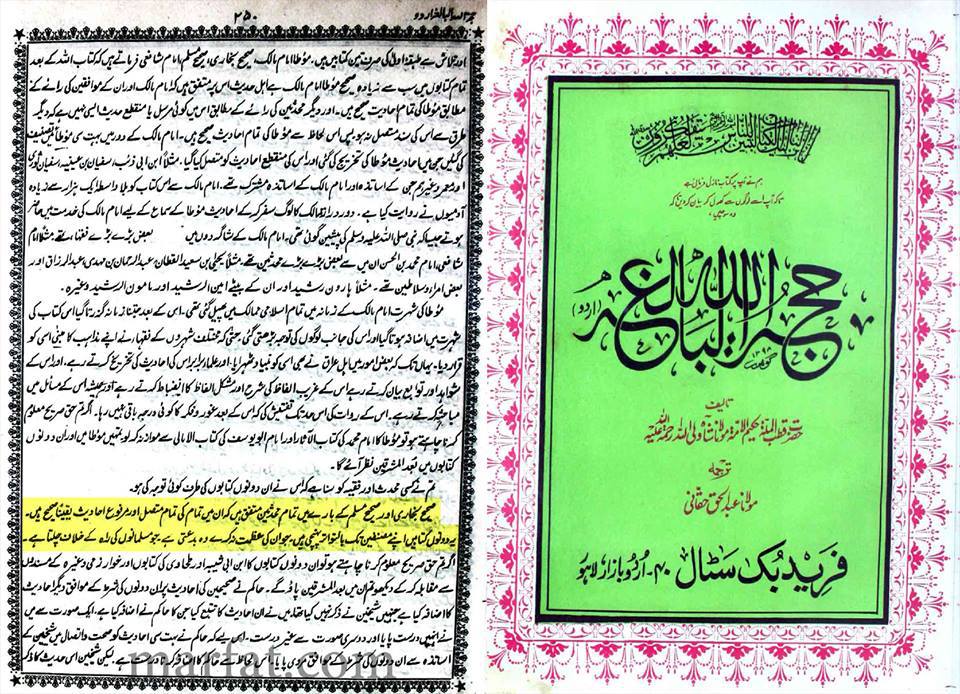 حجۃ اللہ البالغہ اردو
۲۵۰
اور تلاش سے طبقۂ اولیٰ کی صرف تین کتابیں ہیں۔ مؤطا امام مالک، صحیح بخاری، صحیح مسلم امام شافعی فرماتے ہیں کہ کتاب اللہ کے بعد
تمام کتابوں میں سب سے زیادہ صحیح مؤطا امام مالک ہے اہل حدیث اس پر متفق ہیں کہ امام مالک اور ان کے موافقین کی رائے کے
مطابق مؤطا کی تمام احادیث صحیح ہیں۔ اور دیگر محدثین کی رائے کے مطابق اس میں کوئی مرسل یا منقطع حدیث ایسی نہیں ہے کہ دیگر
طرق سے اس کی سند متصل نہ ہو پس اس لحاظ سے مؤطا کی تمام احادیث صحیح ہیں۔ امام مالک کے دور میں بہت سی مؤطائیں تصنیف
کی گئیں جن میں احادیث مؤطا کی تخریج کی گئی اور اس کی منقطع احادیث کو متصل کیا گیا۔ مثلاً ابن ابی ذئب، سفیان بن عیینہ، سفیان ثوری
اور معمر وغیرہم جن کے اساتذہ اور امام مالک کے اساتذہ مشترک تھے۔ امام مالک سے اس کتاب کو بلا واسطہ ایک ہزار سے زیادہ
آدمیوں نے روایت کیا ہے۔ دور دراز ممالک کا لوگ سفر کر کے احادیث مؤطا کے سماع کے لیے امام مالک کی خدمت میں حاضر
ہوتے جیسا کہ نبی صلی اللہ علیہ وسلم کی پیشین گوئی تھی۔ امام مالک کے شاگردوں میں بعض بڑے بڑے فقہا تھے مثلاً امام
شافعی، امام محمد بن الحسن ان میں سے بعض بڑے بڑے محدثین تھے۔ مثلاً یحییٰ بن سعید القطان، عبدالرحمان بن مہدی، عبدالرزاق اور
بعض امراء و سلاطین تھے۔ مثلاً ہارون رشید اور ان کے بیٹے امین الرشید اور مامون الرشید وغیرہ۔
مؤطا کی شہرت امام مالک کے زمانہ میں تمام اسلامی ممالک میں پھیل گئی تھی۔ اس کے بعد جتنا زمانہ گزرتا گیا اس کتاب کی
شہرت میں اضافہ ہوتا گیا اور اس کی جانب لوگوں کی توجہ بڑھتی گئی حتیٰ کہ مختلف شہروں کے فقہا نے اپنے مذاہب کا مبنیٰ اسی کو
قرار دیا، یہاں تک کہ بعض امور میں اہل عراق نے بھی اسی کو بنیاد ٹھہرایا، اور علماء برابر اس کی احادیث کی تخریج کرتے رہے، اور اس کے
شواہد اور توابع بیان کرتے رہے اس کے غریب الفاظ کی شرح اور مشکل الفاظ کا انضباط کرتے رہے اور ہمیشہ اس کے مسائل میں
مباحثے کرتے رہے۔ اس کے رواۃ کی اس حد تک تفتیش کی کہ اس کے بعد غور و فکر کا کوئی درجہ باقی نہیں رہا۔ اگر تم حق صریح معلوم
کرنا چاہتے ہو تو مؤطا کا امام محمد کی کتاب الآثار اور امام ابو یوسف کی کتاب الامالی سے موازنہ کرلو، تمہیں مؤطا میں اور ان دونوں
کتابوں میں بعد المشرقین نظر آئے گا۔
تم نے کسی محدث اور فقیہ کو سنا ہے کہ اس نے ان دونوں کتابوں کی طرف کوئی توجہ کی ہو۔
صحیح بخاری اور صحیح مسلم کے بارے میں تمام محدثین متفق ہیں کہ ان میں تمام کی تمام متصل اور مرفوع احادیث یقیناً صحیح ہیں۔
یہ دونوں کتابیں اپنے مصنفین تک بالتواتر پہنچی ہیں۔ جو ان کی عظمت نہ کرے وہ بدعتی ہے جو مسلمانوں کی راہ کے خلاف چلتا ہے۔
اگر تم حق صریح معلوم کرنا چاہتے ہو تو ان دونوں کتابوں کا ابن ابی شیبہ اور طحاوی کی کتابوں اور خوارزمی وغیرہ کے مسندوں
سے مقابلہ کر کے دیکھو تم ان میں بعد المشرقین پاؤ گے۔ حاکم نے صحیحین کی احادیث پر ان دونوں کی شرط کے موافق دیگر احادیث
کا اضافہ کیا ہے جنہیں شیخین نے ذکر نہیں کیا تھا، میں نے ان احادیث کا تتبع کیا جن کا حاکم نے اضافہ کیا ہے، ایک صورت سے میں
نے انہیں درست پایا اور دوسری صورت سے غیر درست۔ اس لیے کہ حاکم نے بہت سی احادیث کو صحت و اتصال میں شیخین کے
اساتذہ سے ان دونوں کی شرط کے موافق مروی پایا، اس لحاظ سے حاکم کا اضافہ کرنا درست ہے۔ لیکن شیخین اسی حدیث کا ذکر
marfat.com
ہم نے آپ پر کتاب نازل فرمائی ہے
تاکہ آپ اسے لوگوں سے کھول کر بیان کر دیں تاکہ
وہ سوچیں
حجۃ اللہ البالغہ
(اردو)
تالیف
حضرت قطب الملۃ حکیم الامۃ مولانا شاہ ولی اللہ رحمۃ اللہ علیہ
ترجمہ
مولانا عبدالحق حقانی
فرید بک سٹال ۴۰۔ اردو بازار لاہور